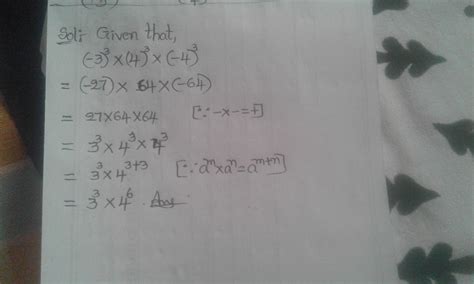 Sol: Given that,
(-3)³ × (4)³ × (-4)³
= (-27) × 64 × (-64)
= 27 × 64 × 64 [∵ - × - = +]
= 3³ × 4³ × 4³
= 3³ × 4³⁺³ [∵ aᵐ × aⁿ = aᵐ⁺ⁿ]
= 3³ × 4⁶ . Ans